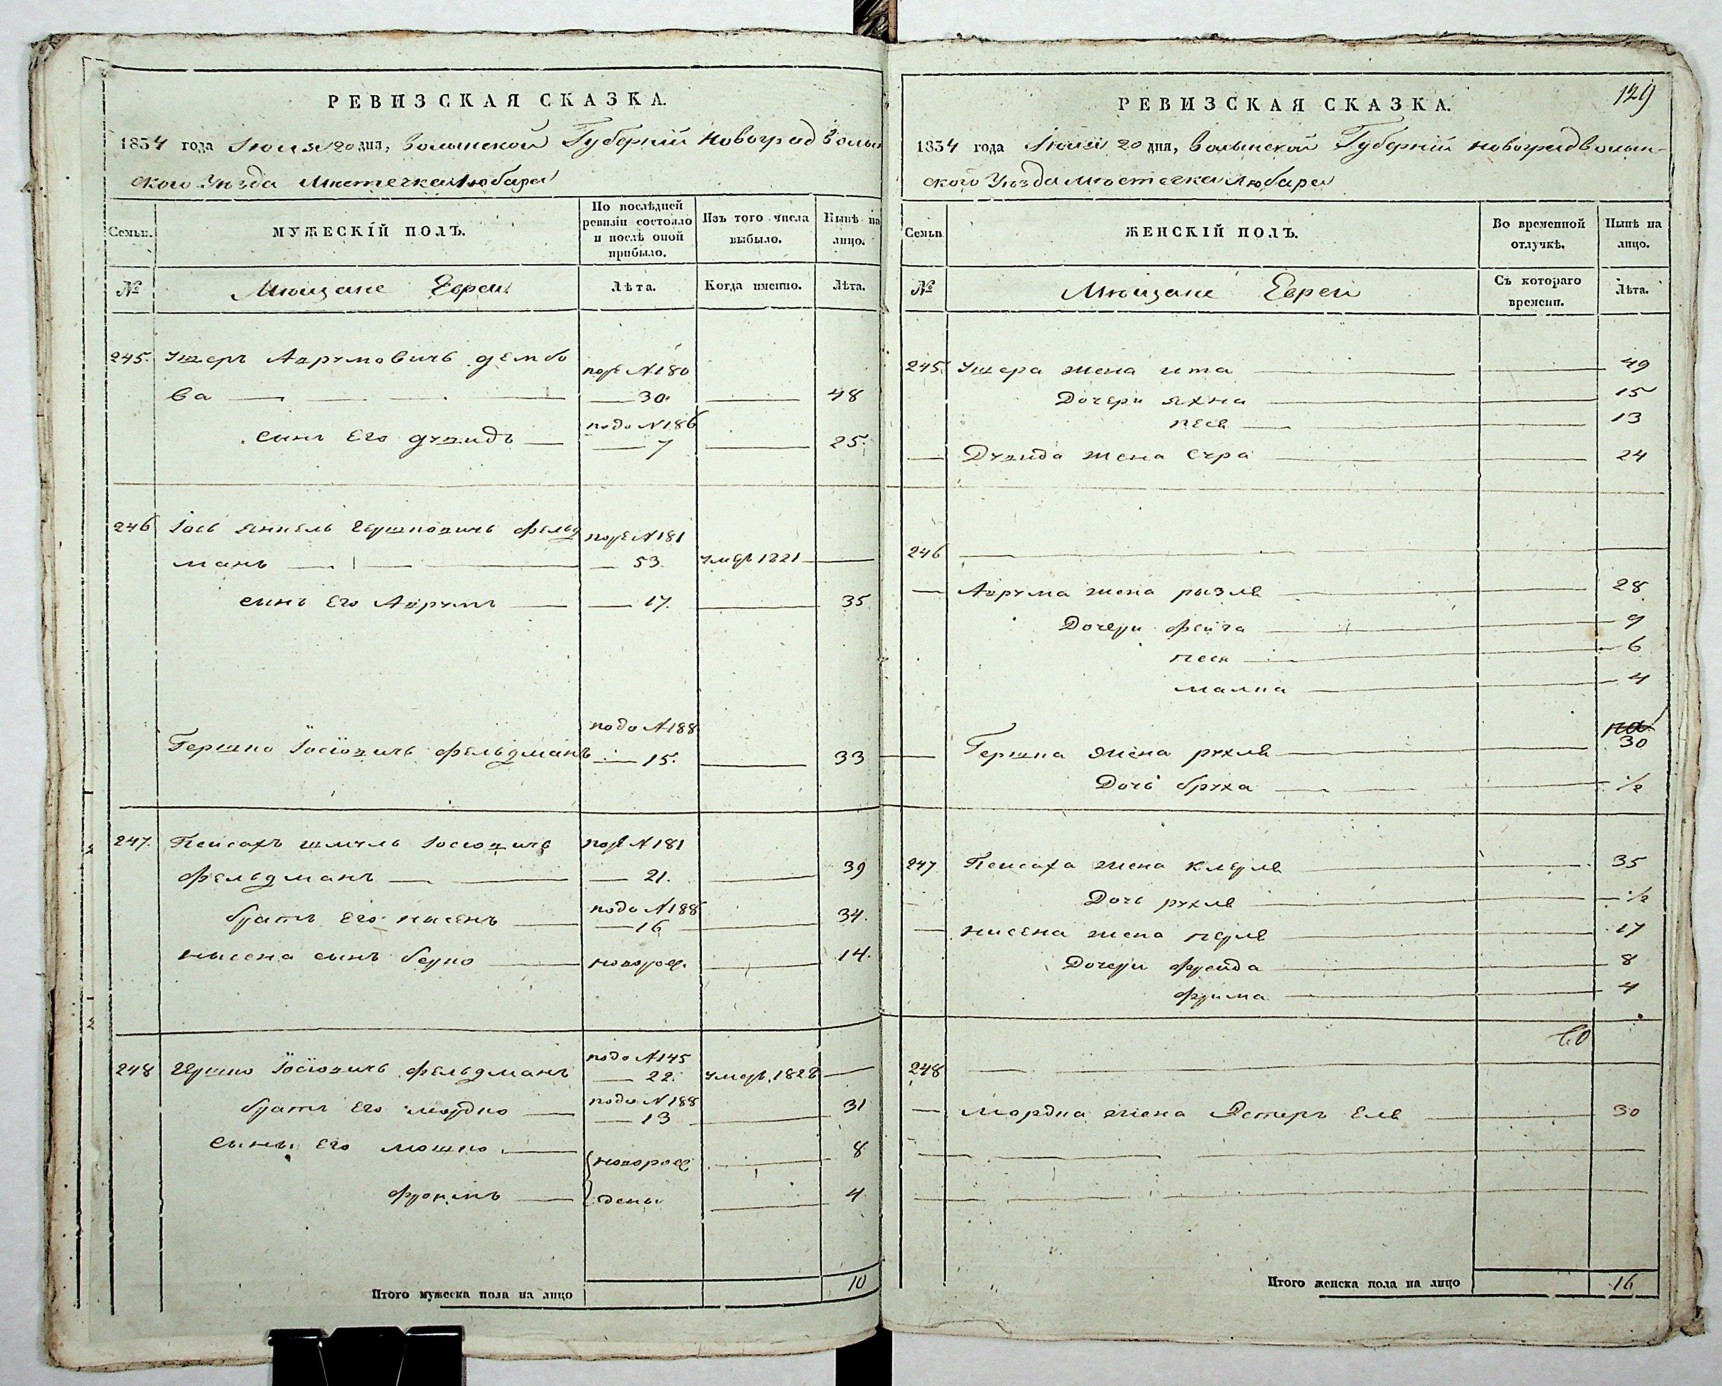 РЕВИЗСКАЯ СКАЗКА.
1834 года Июля 20 дня, Волынской Губернии Новоград Волын
ского Уезда Местечка Любара
Семьи.
МУЖЕСКІЙ ПОЛЪ.
По послѣдней ревизіи состояло и послѣ оной прибыло.
Изъ того числа выбыло.
Нынѣ на лицо.
№
Мещане Евреи
Лѣта.
Когда именно.
Лѣта.
245. Ушеръ Аврумовичъ Дембо
подъ №180
ва 30. 48
подъ №186
сынъ его Дувидъ 7 25.
246 Іось Янкель Гершковичъ Фельд
подъ №181
манъ 53. умеръ 1821
сынъ его Аврумъ 17. 35
подъ №188
Гершко Іосіовичъ Фельдманъ 15. 33
247. Пейсахъ Шмуль Іосіовичъ подъ №181
Фельдманъ 21. 39
подъ №188
братъ его Нисенъ 16 34.
Нисена сынъ Берко новорож. 14.
подъ №145
248 Гершко Іосіовичъ Фельдманъ 22. умеръ 1828
подъ №188
братъ его Мордко 13 31
сынъ его Мошко новорож 8
Фроимъ дены 4
Итого мужеска пола на лицо 10
129
РЕВИЗСКАЯ СКАЗКА.
1834 года Июля 20 дня, Волынской Губернии Новоградволын-
ского Уезда Местечка Любара
Семьи
ЖЕНСКІЙ ПОЛЪ.
Во временной отлучкѣ.
Нынѣ на лицо.
№
Мещане Евреи
Съ котораго времени.
Лѣта.
245. Ушера жена Ита 49
Дочери Яхна 15
Песя 13
Дувида жена Сура 24
246
Аврума жена Рызля 28
Дочери Фейга 9
Песя 6
Малка 4
Гершка жена Рухля 30
Дочь Бруха ½
247 Пейсаха жена Клерля 35
Дочь Рухля ½
Нисена жена Перля 17
Дочери Фрейда 8
Фрима 4
248
Мордка жена Естеръ Еля 30
Итого женска пола на лицо 16